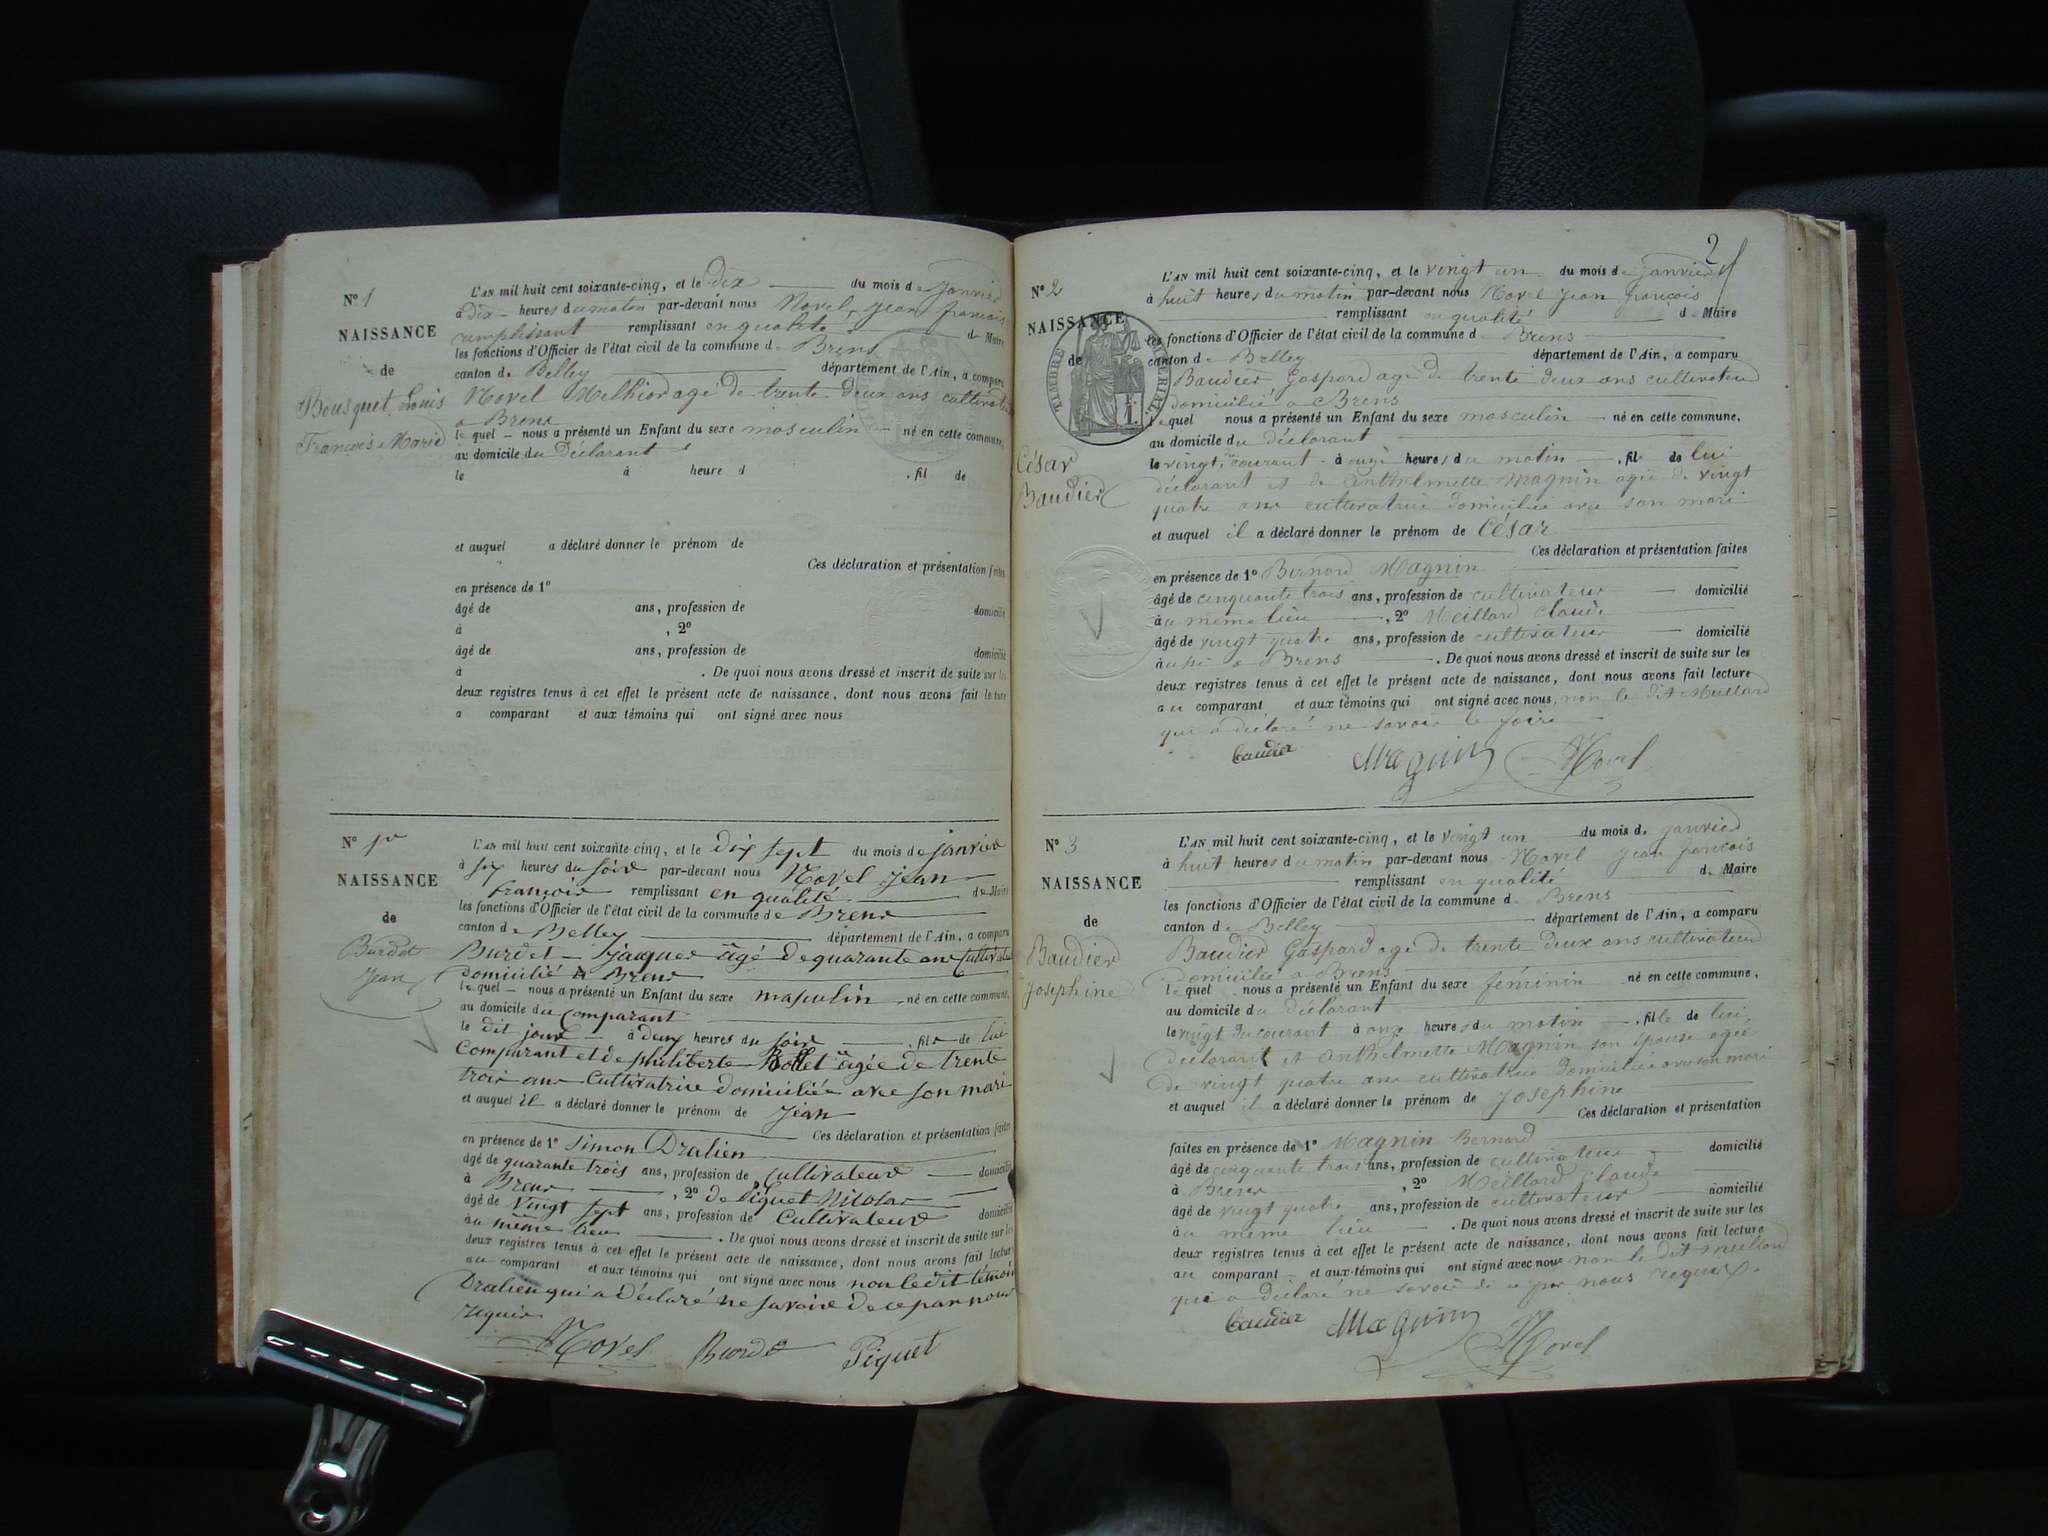 N° 1
NAISSANCE
de
Bousquet Louis
François Marie
L'AN mil huit cent soixante-cinq, et le Dix du mois de janvier
à Dix heures du matin par-devant nous Novel, Jean françois
remplissant remplissant en qualité de Maire
les fonctions d'Officier de l'état civil de la commune de Brens
canton de Belley département de l'Ain, a comparu
Novel Melhior agé de trente deux ans cultivateur
a Brens
le quel nous a présenté un Enfant du sexe masculin né en cette commune,
au domicile du Déclarant
le à heure d , fil de
et auquel a déclaré donner le prénom de
Ces déclaration et présentation faites
en présence de 1°
âgé de ans, profession de domicilié
à , 2°
âgé de ans, profession de domicilié
à . De quoi nous avons dressé et inscrit de suite sur les
deux registres tenus à cet effet le présent acte de naissance, dont nous avons fait lecture
a comparant et aux témoins qui ont signé avec nous
N° 1er
NAISSANCE
de
Burdet
Jean
L'AN mil huit cent soixante cinq, et le dix sept du mois de janvier
à six heures du soir par-devant nous Novel Jean
françois remplissant en qualité de Maire
les fonctions d'Officier de l'état civil de la commune de Brens
canton de Belley département de l'Ain, a comparu
Burdet Jacques âgé de quarante ans Cultivateur
domicilié A Brens
le quel nous a présenté un Enfant du sexe masculin né en cette commune,
au domicile du Comparant
le dit jour à deux heures du soir , fils de lui
Comparant et de philiberte âgée de trente
trois ans Cultivatrice domiciliée avec son mari
et auquel il a déclaré donner le prénom de Jean
Ces déclaration et présentation faites
en présence de 1° Simon Dralien
âgé de quarante trois ans, profession de Cultivateur domicilié
à Brens , 2° de Piquet Nicolas
âgé de vingt sept ans, profession de Cultivateur domicilié
au même lieu . De quoi nous avons dressé et inscrit de suite sur les
deux registres tenus à cet effet le présent acte de naissance, dont nous avons fait lecture
au comparant et aux témoins qui ont signé avec nous non le dit témoin
Dralien qui a déclaré ne savoir de ce par nous
requis
Novel Burdet Piquet
2
N° 2
NAISSANCE
de
TIMBRE IMPÉRIAL
César
Baudier
L'AN mil huit cent soixante-cinq, et le vingt un du mois de janvier
à huit heures du matin par-devant nous Novel Jean françois
remplissant en qualité de Maire
les fonctions d'Officier de l'état civil de la commune de Brens
canton de Belley département de l'Ain, a comparu
Baudier Gaspard agé de trente deux ans cultivateur
domicilié a Brens
lequel nous a présenté un Enfant du sexe masculin né en cette commune,
au domicile du déclarant
le vingt du courant à onze heures du matin , fil de lui
déclarant et de Anthelmette Magnin agée de vingt
quatre ans cultivatrice domiciliée avec son mari
et auquel il a déclaré donner le prénom de César
Ces déclaration et présentation faites
en présence de 1° Bernard Magnin
âgé de cinquante trois ans, profession de cultivateur domicilié
au même lieu , 2° Meillard Claude
âgé de vingt quatre ans, profession de cultivateur domicilié
à a Brens . De quoi nous avons dressé et inscrit de suite sur les
deux registres tenus à cet effet le présent acte de naissance, dont nous avons fait lecture
au comparant et aux témoins qui ont signé avec nous, non le dit Meillard
qui a déclaré ne savoir le faire
Baudier Magnin Novel
N° 3
NAISSANCE
de
Baudier
Josephine
L'AN mil huit cent soixante-cinq, et le vingt un du mois de janvier
à huit heures du matin par-devant nous Novel Jean françois
remplissant en qualité de Maire
les fonctions d'Officier de l'état civil de la commune de Brens
canton de Belley département de l'Ain, a comparu
Baudier Gaspard agé de trente deux ans cultivateur
domicilié a Brens
lequel nous a présenté un Enfant du sexe féminin né en cette commune,
au domicile du déclarant
le vingt du courant à onze heures du matin , fille de lui
déclarant et Anthelmette Magnin son épouse agée
de vingt quatre ans cultivatrice domiciliée avec son mari
et auquel il a déclaré donner le prénom de Josephine
Ces déclaration et présentation
faites en présence de 1° Magnin Bernard
âgé de cinquante trois ans, profession de cultivateur domicilié
à Brens , 2° Meillard Claude
âgé de vingt quatre ans, profession de cultivateur domicilié
au même lieu . De quoi nous avons dressé et inscrit de suite sur les
deux registres tenus à cet effet le présent acte de naissance, dont nous avons fait lecture
au comparant et aux témoins qui ont signé avec nous non le dit Meillard
qui a déclaré ne savoir de ce par nous requis.
Baudier Magnin Novel